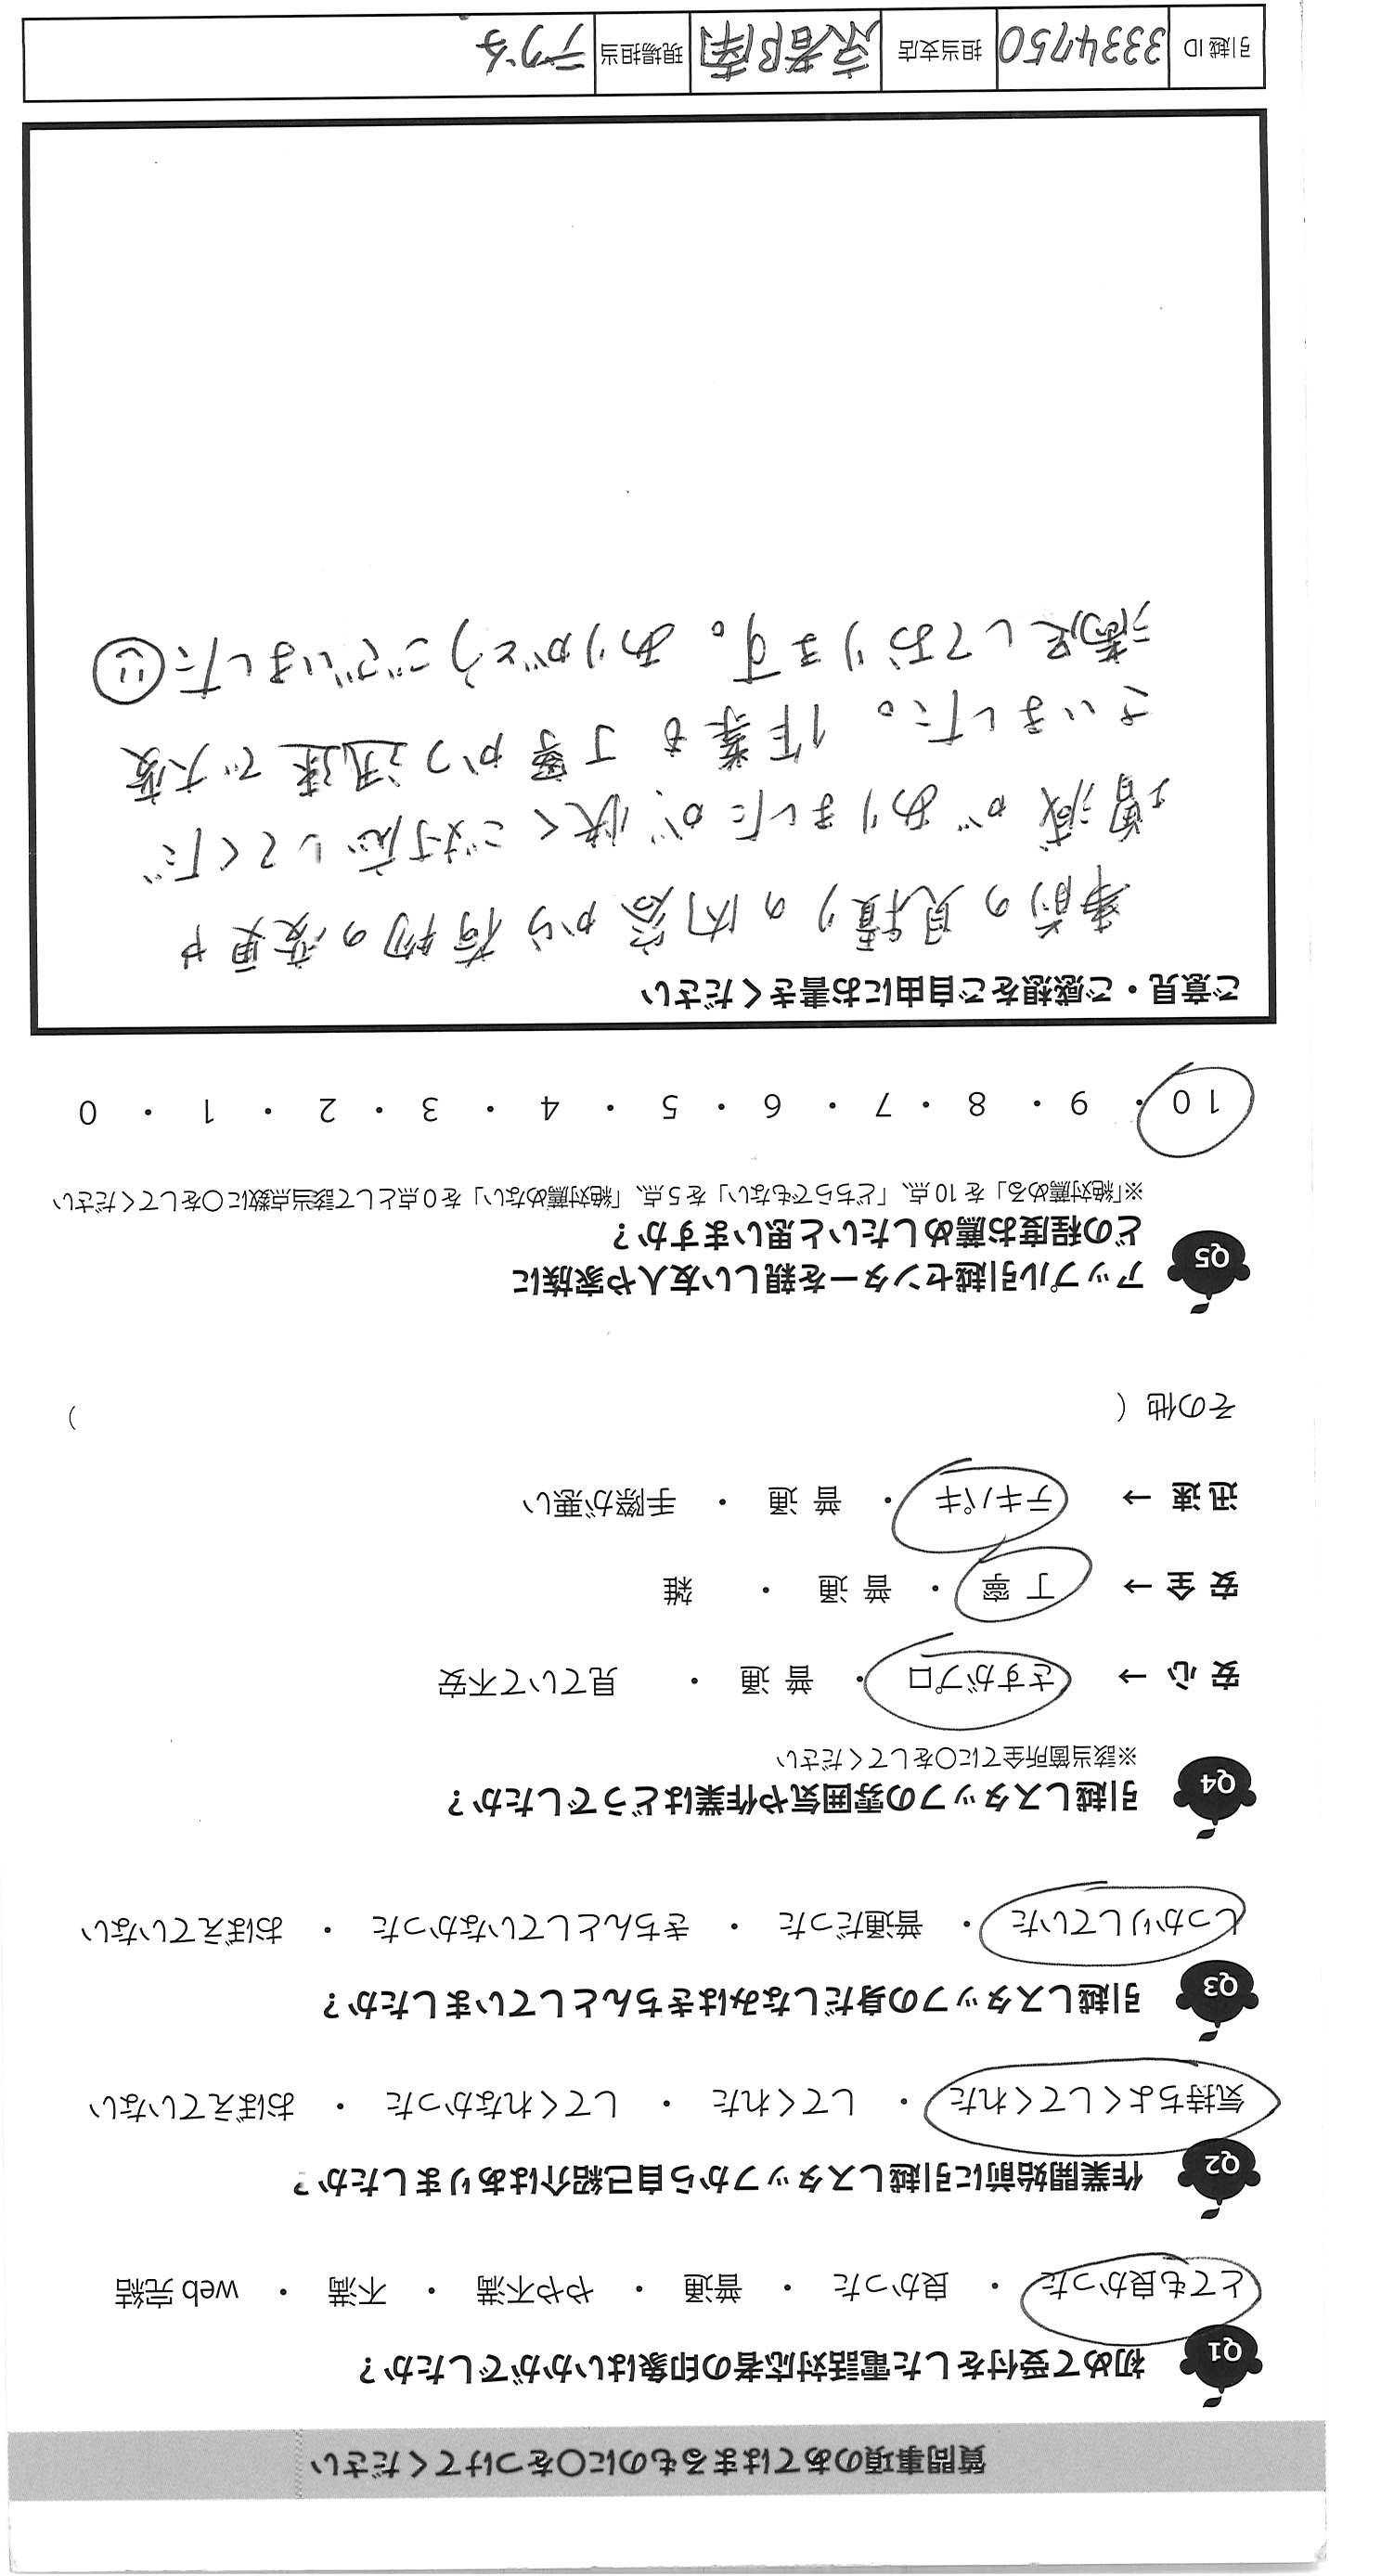 質問事項のあてはまるものに〇をつけてください
Q1 初めて受付をした電話対応者の印象はいかがでしたか？
とても良かった ・ 良かった ・ 普通 ・ やや不満 ・ 不満 ・ web 完結
Q2 作業開始前に引越しスタッフから自己紹介はありましたか？
気持ちよくしてくれた ・ してくれた ・ してくれなかった ・ おぼえていない
Q3 引越しスタッフの身だしなみはきちんとしていましたか？
しっかりしていた ・ 普通だった ・ きちんとしていなかった ・ おぼえていない
Q4 引越しスタッフの雰囲気や作業はどうでしたか？
※該当箇所全てに〇をしてください
安 心 → さすがプロ ・ 普 通 ・ 見ていて不安
安 全 → 丁 寧 ・ 普 通 ・ 雑
迅 速 → テキパキ ・ 普 通 ・ 手際が悪い
その他 (　　　)
Q5 アップル引越センターを親しい友人や家族に
どの程度お薦めしたいと思いますか？
※「絶対薦める」を 10 点、「どちらでもない」を 5 点、「絶対薦めない」を 0 点として該当点数に〇をしてください
10 ・ 9 ・ 8 ・ 7 ・ 6 ・ 5 ・ 4 ・ 3 ・ 2 ・ 1 ・ 0
ご意見・ご感想をご自由にお書きください
事前の見積りの内容から荷物の変更や
増減がありましたが、快くご対応してくだ
さいました。作業も丁寧かつ迅速で大変
満足しております。ありがとうございました
引越 ID 3334750 担当支店 京都南 現場担当